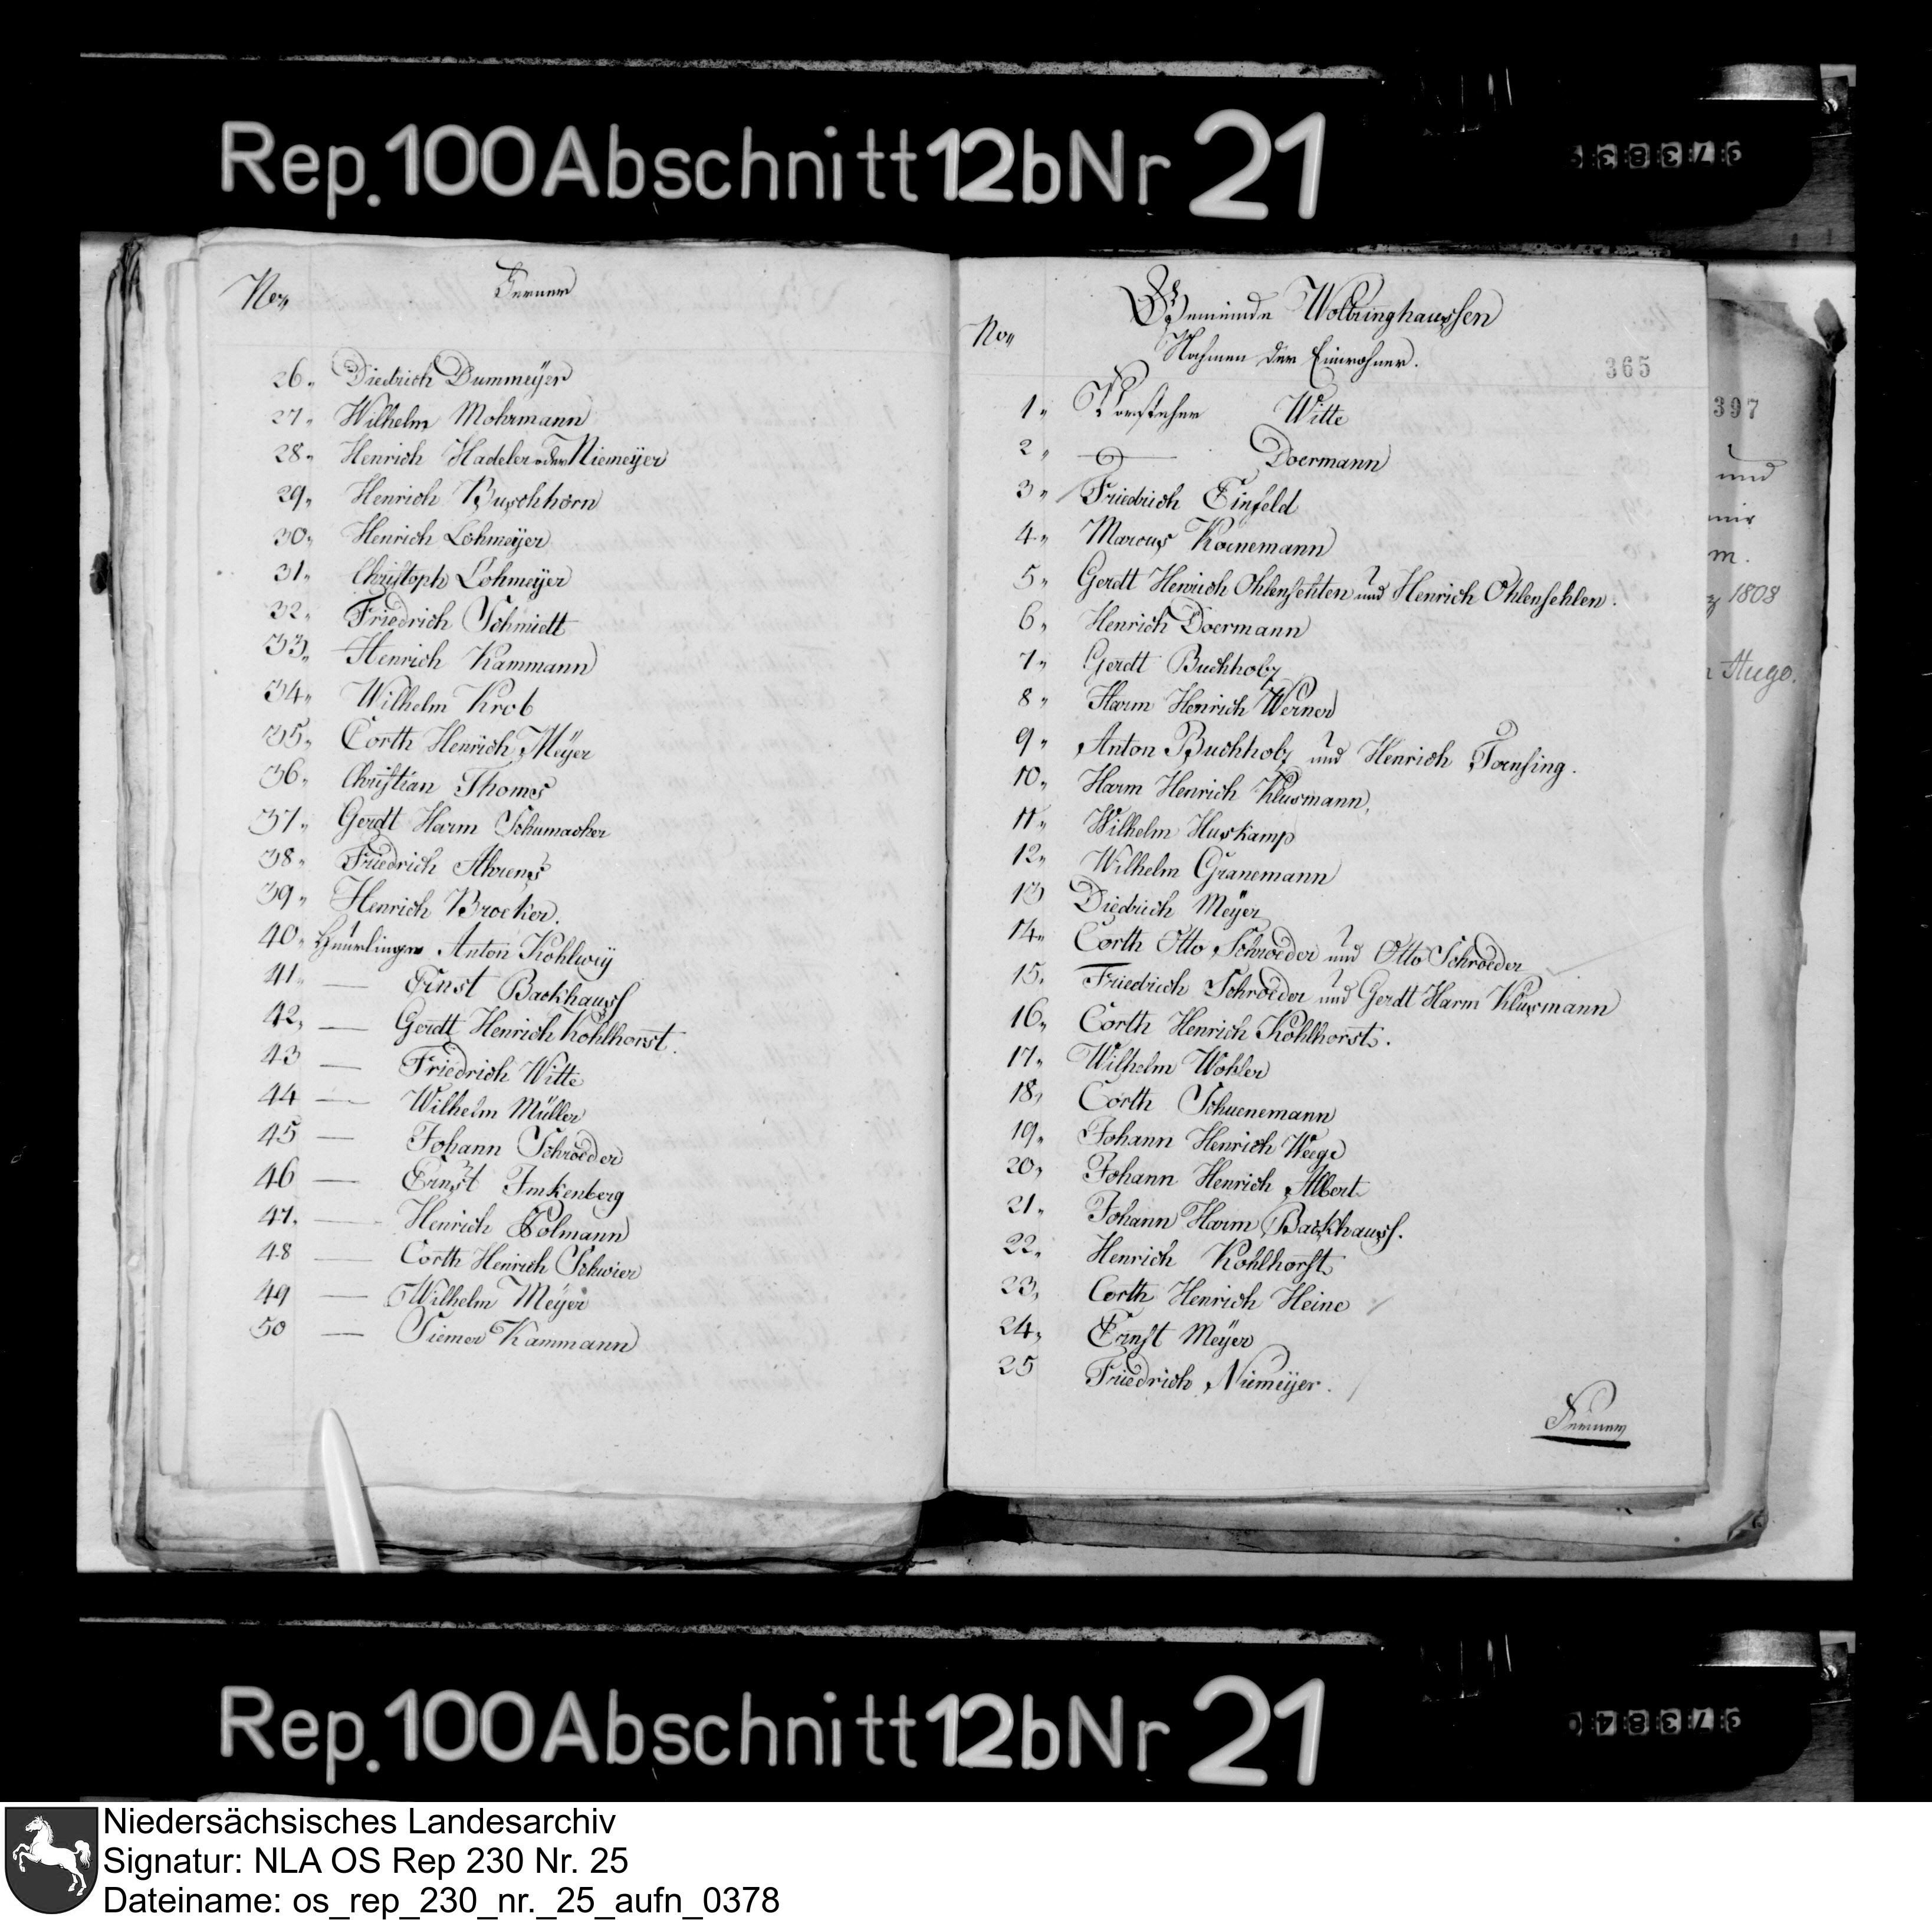 Rep. 100 Abschnitt 12b Nr 21
No
Ferner
26. Diedrich Dummeÿer
27. Wilhelm Mohrmann
28. Henrich Hadeler oder Niemeijer
29. Henrich Buschhorn
30. Henrich Lohmeijer
31. Christoph Lohmeijer
32. Friedrich Schmidt
33. Henrich Kammann
34. Wilhelm Krob
35. Corth Henrich Meÿer
36. Christian Thoms
37. Gerdt Harm Schumacher
38. Friedrich Ahrens
39. Henrich Broeker.
40. Heuerlinge Anton Kohlweÿ
41. — Ernst Backhauss
42. — Gerdt Henrich Kohlhorst.
43 — Friedrich Witte
44 — Wilhelm Müller
45 — Johann Schroeder
46 — Ernst Imkenberg
47. — Henrich
48 — Corth Henrich Schwier
49 — Wilhelm Meÿer
50 — Siemer Kammann
Gemeinde Wolbringhaussen
No
Nahmen der Einwohner.
365
1. Vorsteher Witte
2. — Doermann
3. Friedrich Einfeld
4. Marcus Kornemann
5. Gerdt Henrich Ohlensehlen und Henrich Ohlensehlen.
6. Henrich Doermann
7. Gerdt Buchholz
8. Harm Henrich Werner
9. Anton Buchholz und Henrich Toensing.
10. Harm Henrich Klusmann,
11. Wilhelm Huskamp
12. Wilhelm Granemann
13 Diedrich Meÿer
14. Corth Otto Schroeder und Otto Schroeder
15. Friedrich Schroeder und Gerdt Harm Klusmann
16. Corth Henrich Kohlhorst.
17. Wilhelm Wohler
18. Corth Schuenemann
19. Johann Henrich Weege
20. Johann Henrich Albert
21. Johann Harm Backhauss.
22. Henrich Kohlhorst
23. Corth Henrich Heine
24. Ernst Meÿer
25 Friedrich Niemeijer.
Ferner
397
und
m.
1808
Hugo.
Rep. 100 Abschnitt 12b Nr 21
Niedersächsisches Landesarchiv
Signatur: NLA OS Rep 230 Nr. 25
Dateiname: os_rep_230_nr._25_aufn_0378